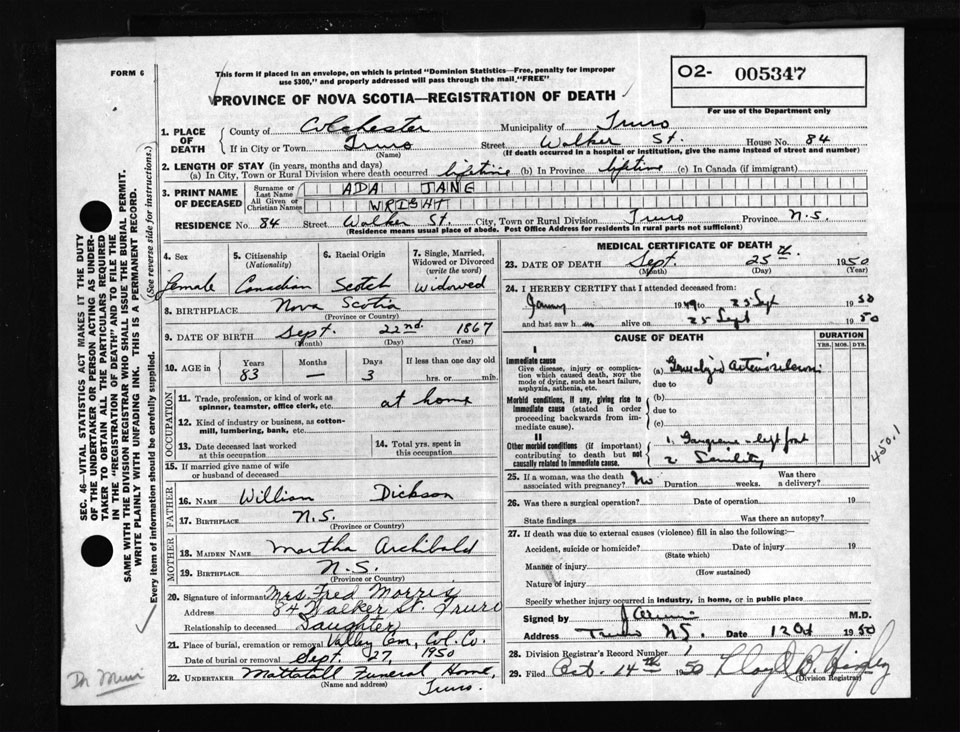 FORM 6
This form if placed in an envelope, on which is printed "Dominion Statistics—Free, penalty for improper
use $300," and properly addressed will pass through the mail "FREE"
O2- 005347
For use of the Department only
PROVINCE OF NOVA SCOTIA—REGISTRATION OF DEATH
1. PLACE OF DEATH
County of Colchester Municipality of Truro
If in City or Town Truro Street Walker St. House No. 84
(Name) (If death occurred in a hospital or institution, give the name instead of street and number)
2. LENGTH OF STAY (in years, months and days)
(a) In City, Town or Rural Division where death occurred lifetime (b) In Province lifetime (c) In Canada (if immigrant)
3. PRINT NAME OF DECEASED
Surname or Last Name ADA JANE
All Given or Christian Names WRIGHT
RESIDENCE No. 84 Street Walker St. City, Town or Rural Division Truro Province N.S.
(Residence means usual place of abode. Post Office Address for residents in rural parts not sufficient)
4. Sex
Female
5. Citizenship
(Nationality)
Canadian
6. Racial Origin
Scotch
7. Single, Married,
Widowed or Divorced
(write the word)
Widowed
8. BIRTHPLACE Nova Scotia
(Province or Country)
9. DATE OF BIRTH Sept. 22nd 1867
(Month) (Day) (Year)
10. AGE in
Years Months Days If less than one day old
83 — 3 hrs. or min.
OCCUPATION
11. Trade, profession, or kind of work as
spinner, teamster, office clerk, etc. at home
12. Kind of industry or business, as cotton-
mill, lumbering, bank, etc.
13. Date deceased last worked
at this occupation
14. Total yrs. spent in
this occupation
15. If married give name of wife
or husband of deceased
FATHER
16. NAME William Dickson
17. BIRTHPLACE N.S.
(Province or Country)
MOTHER
18. MAIDEN NAME Martha Archibald
19. BIRTHPLACE N.S.
(Province or Country)
20. Signature of informant Mrs Fred Morris
Address 84 Walker St. Truro
Relationship to deceased Daughter
21. Place of burial, cremation or removal Valley Cem, Col. Co.
Date of burial or removal Sept. 27, 1950
22. UNDERTAKER Mattatall Funeral Home,
(Name and address) Truro.
MEDICAL CERTIFICATE OF DEATH
23. DATE OF DEATH Sept. 25th. 1950
(Month) (Day) (Year)
24. I HEREBY CERTIFY that I attended deceased from:
1949 to 25 Sept 1950
and hat saw h alive on 25 Sept 1950
CAUSE OF DEATH
DURATION
YRS. MOS. DYS.
I
Immediate cause
Give disease, injury or complica-
tion which caused death, NOT the
mode of dying, such as heart failure,
asphyxia, asthenia, etc.
(a) Generalized Arteriosclerosis
due to
Morbid conditions, if any, giving rise to
immediate cause (stated in order
proceeding backwards from im-
mediate cause).
(b)
due to
(c)
II
Other morbid conditions (if important)
contributing to death but not
causally related to immediate cause.
1. Gangrene - left foot
2 Senility
450.1
25. If a woman, was the death
associated with pregnancy? No Duration weeks. Was there
a delivery?
26. Was there a surgical operation? Date of operation 19
State findings Was there an autopsy?
27. If death was due to external causes (violence) fill in also the following:—
Accident, suicide or homicide? Date of injury 19
(State which)
Manner of injury
(How sustained)
Nature of injury
Specify whether injury occurred in industry, in home, or in public place
Signed by M.D.
Address Truro N.S. Date 12 Oct 1950
28. Division Registrar's Record Number
29. Filed Oct. 14th 1950 Lloyd B.
(Division Registrar)
SEC. 46—VITAL STATISTICS ACT MAKES IT THE DUTY
OF THE UNDERTAKER OR PERSON ACTING AS UNDER-
TAKER TO OBTAIN ALL THE PARTICULARS REQUIRED
IN THE "REGISTRATION OF DEATH" AND TO FILE THE
SAME WITH THE DIVISION REGISTRAR WHO SHALL ISSUE THE BURIAL PERMIT.
WRITE PLAINLY WITH UNFADING INK. THIS IS A PERMANENT RECORD.
Every item of information should be carefully supplied. (See reverse side for instructions.)
Dr Muir